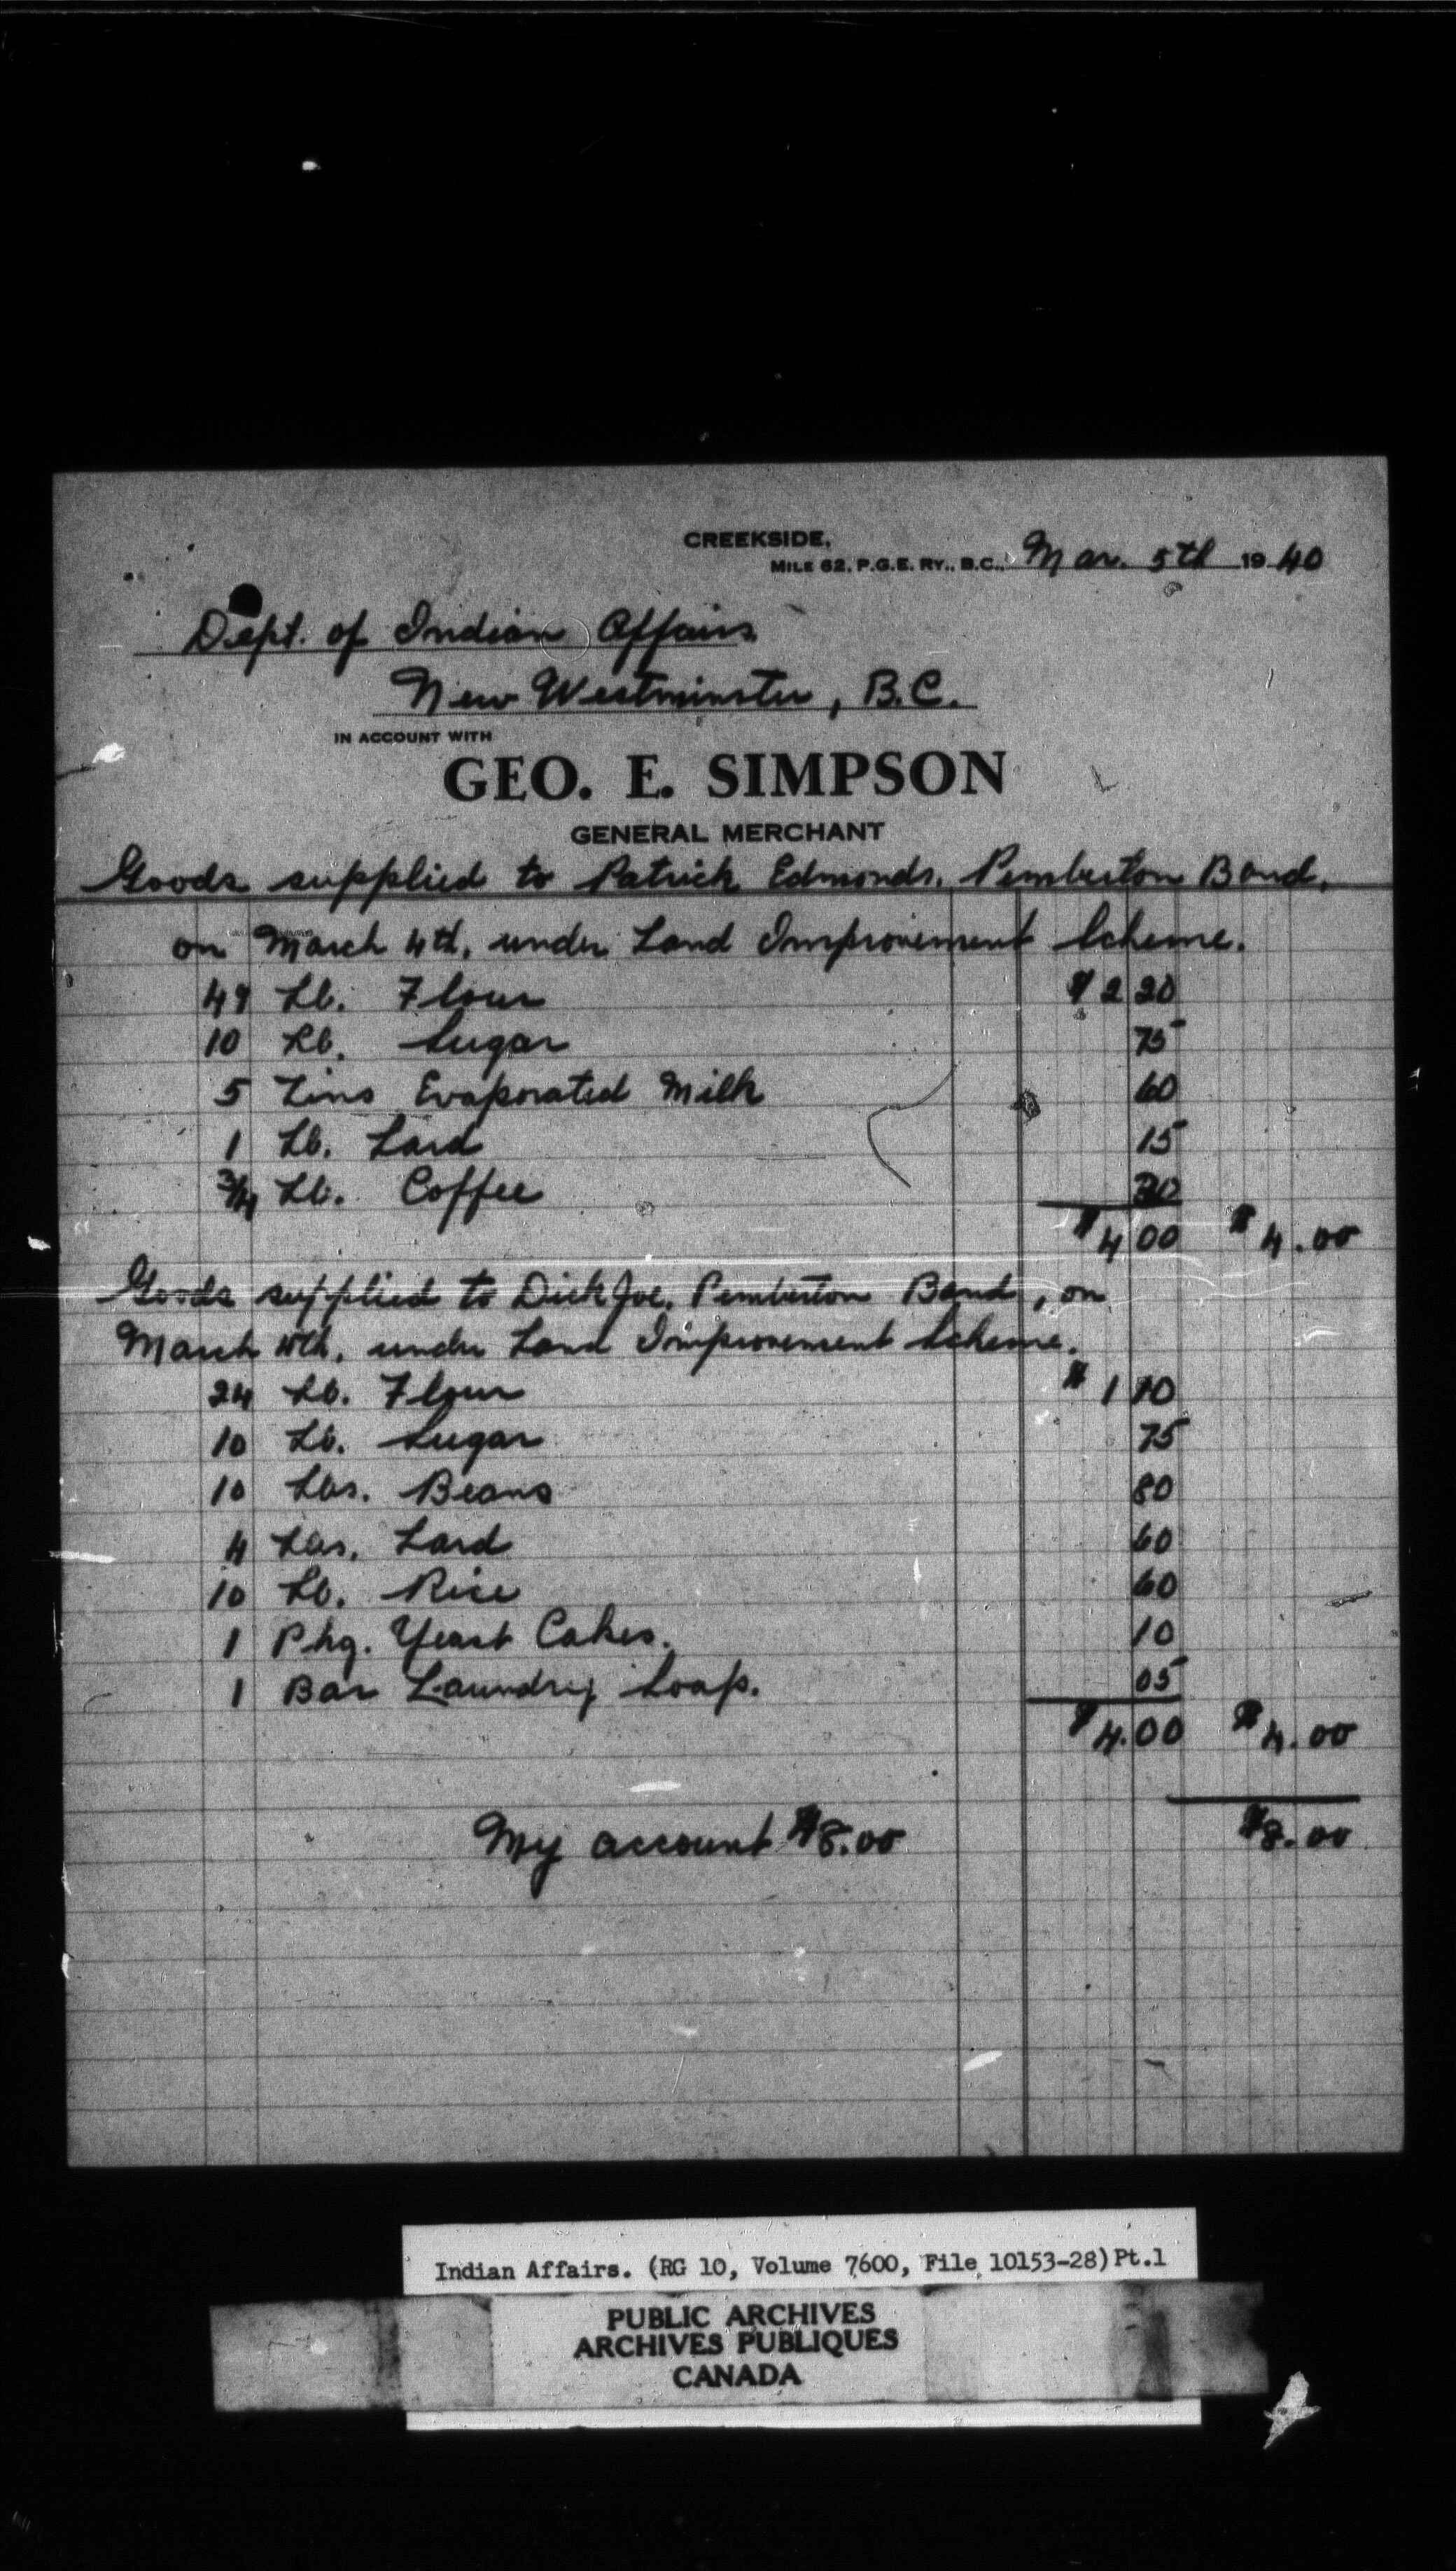 CREEKSIDE,
MILE 62, P.G.E. RY., B.C., Mar. 5th 1940
Dept. of Indian Affairs
New Westminster, B.C.
IN ACCOUNT WITH
GEO. E. SIMPSON
GENERAL MERCHANT
Goods supplied to Patrick Edmonds, Pemberton Band,
on March 4th, under Land Improvement Scheme.
49 Lb. Flour $2 20
10 Lb. Sugar 75
5 Tins Evaporated Milk 60
1 Lb. Lard 15
3/4 Lb. Coffee 30
$4 00 $4.00
Goods supplied to Dick Joe, Pemberton Band, on
March 4th, under Land Improvement Scheme.
24 Lb. Flour $1 10
10 Lb. Sugar 75
10 Lbs. Beans 80
4 Lbs. Lard 60
10 Lb. Rice 60
1 Pkg. Yeast Cakes. 10
1 Bar Laundry Soap. 05
$4.00 $4.00
My account $8.00 $8.00
Indian Affairs. (RG 10, Volume 7600, File 10153-28) Pt.1
PUBLIC ARCHIVES
ARCHIVES PUBLIQUES
CANADA